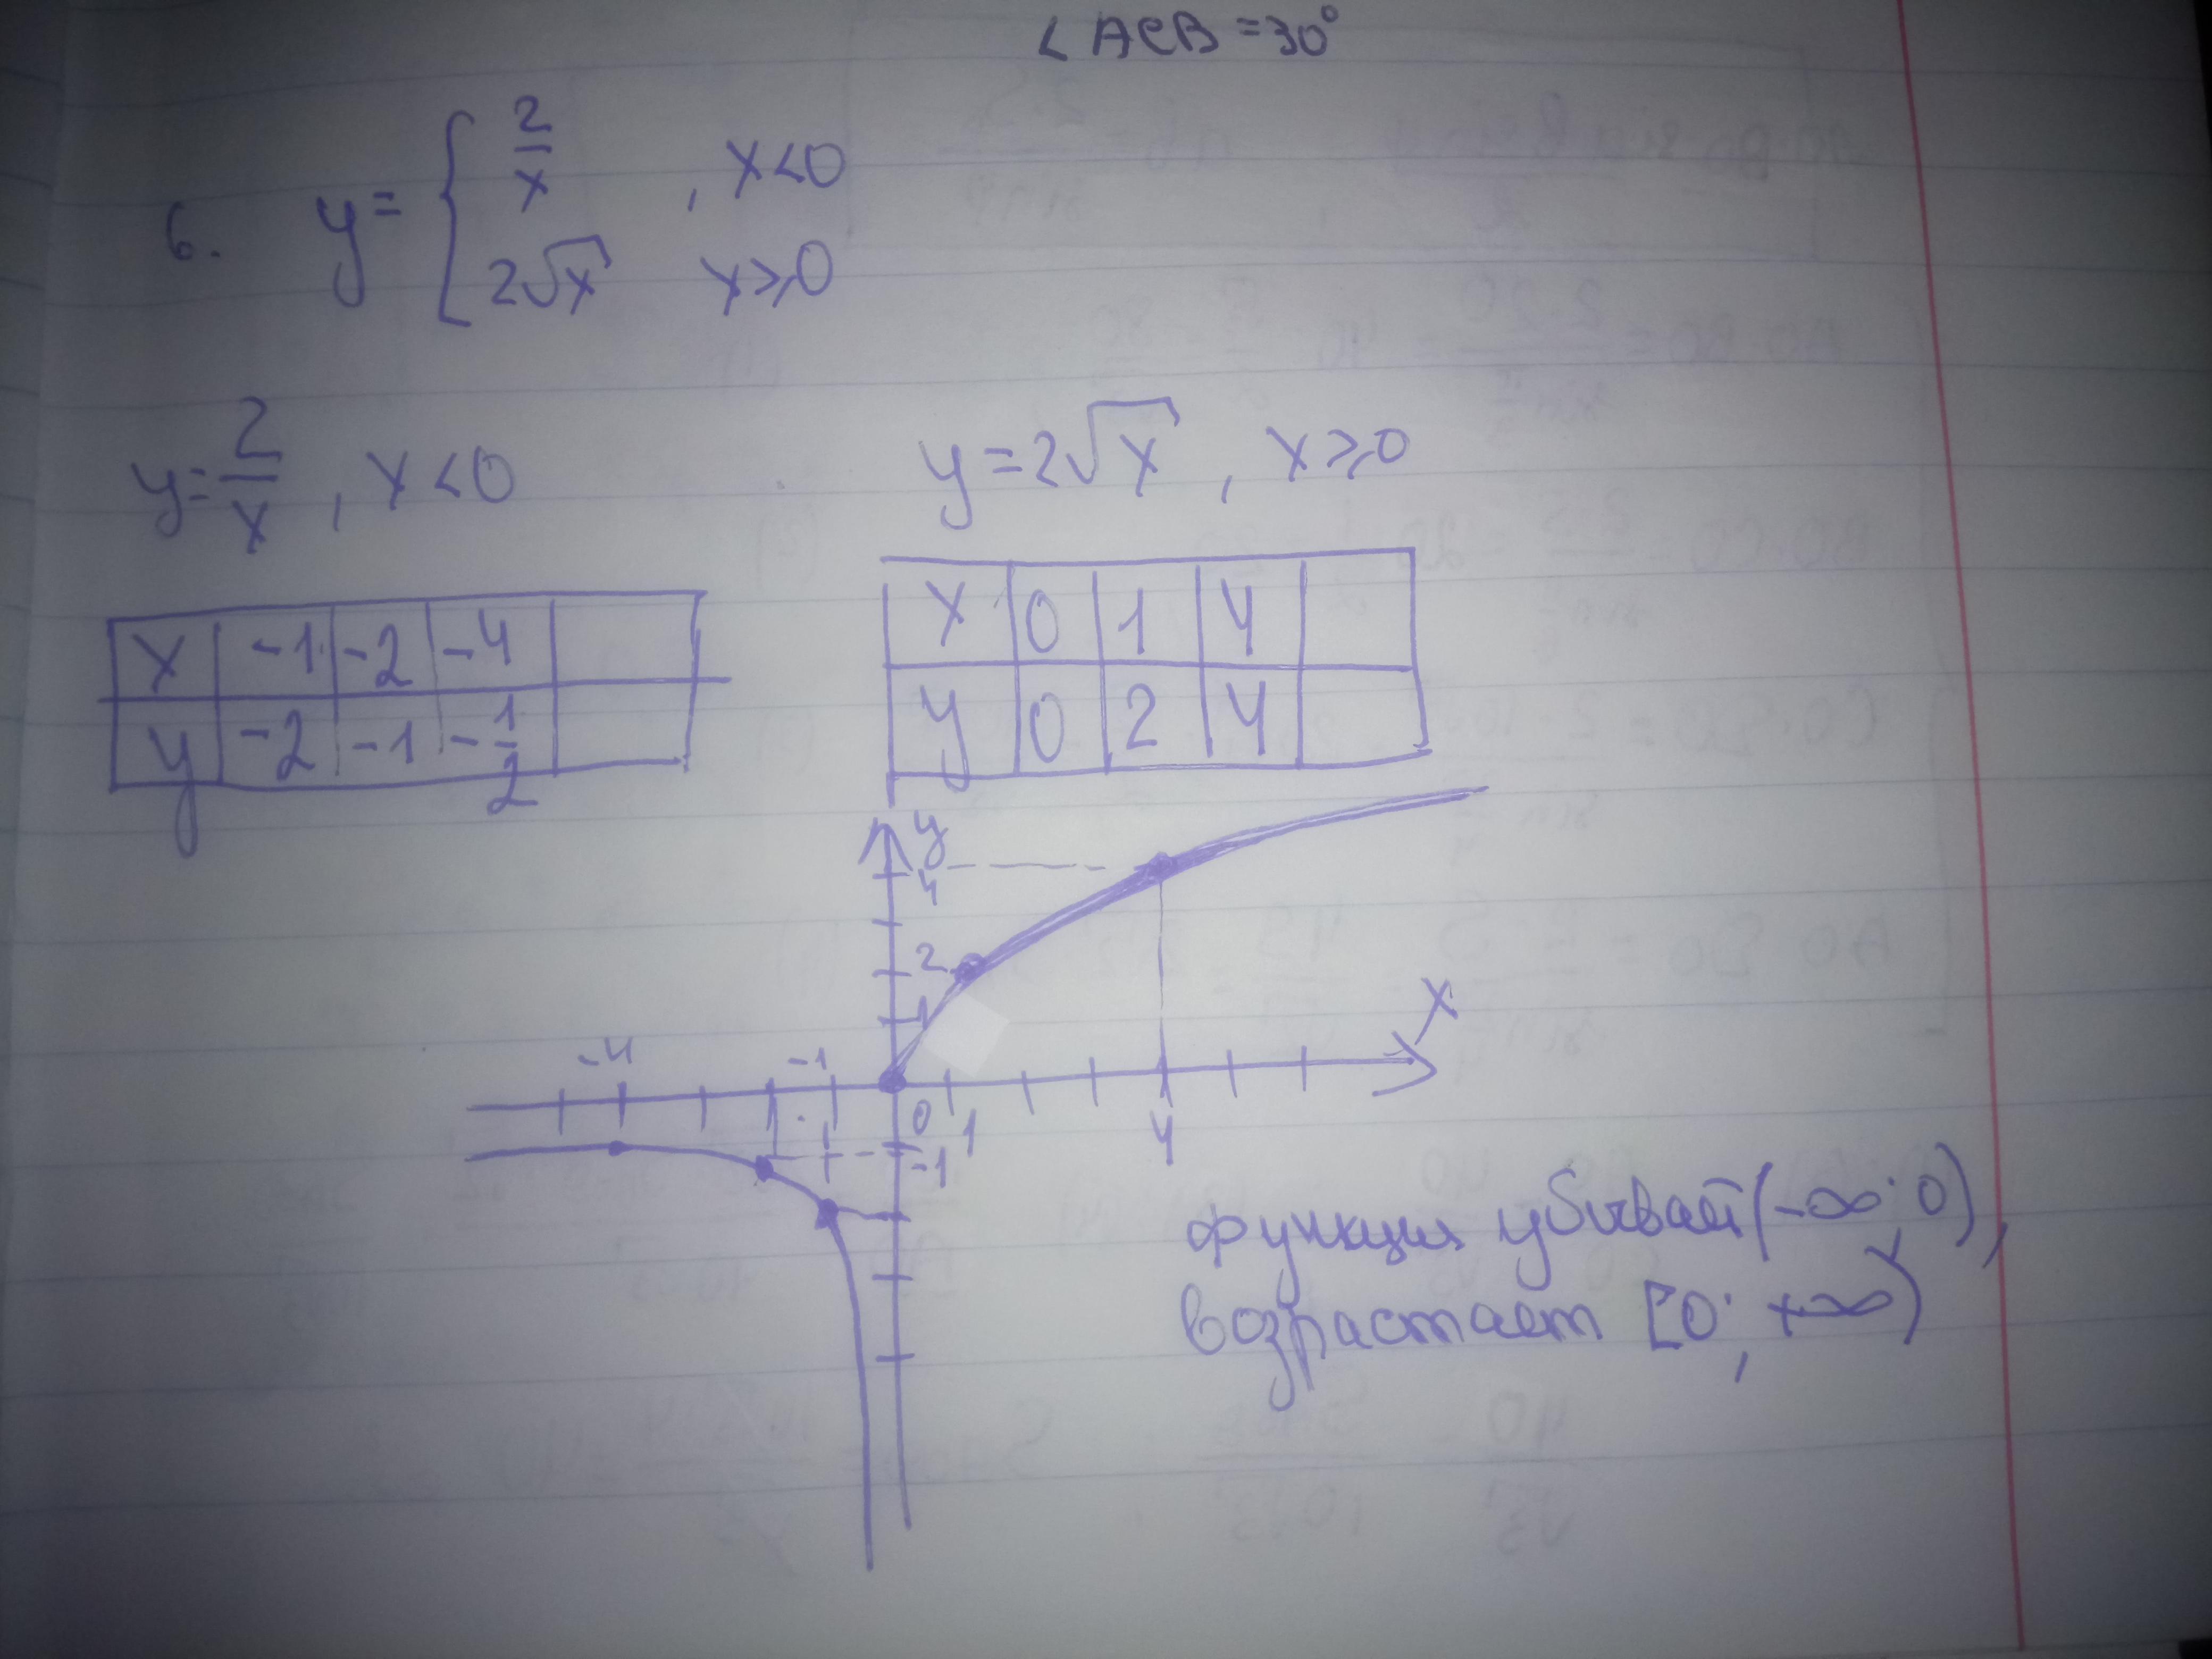 ∠ ACB = 30°
6. y = { 2/x , x<0
2√x x⩾0
y = 2/x , x<0
y = 2√x , x⩾0
x -1 -2 -4
y -2 -1 -1/2
x 0 1 4
y 0 2 4
y
4
2
1
x
-4 -1
0 1 4
-1
функция убывает (-∞; 0),
возрастает [0; +∞)